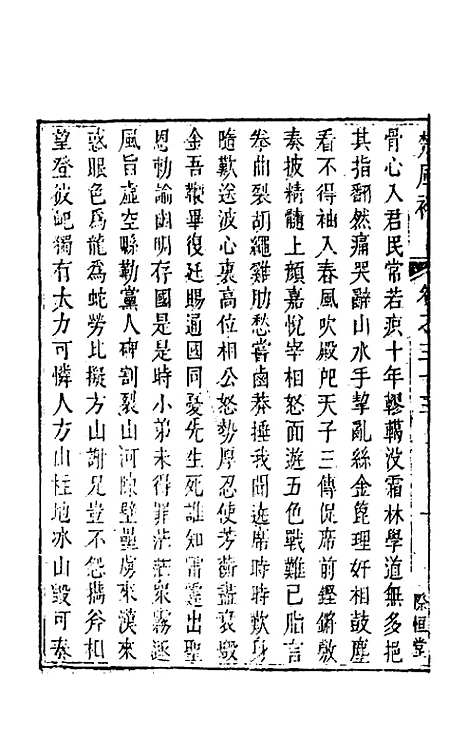 楚風補 卷之三十三
骨心入君民常若疢十年轇轕没霜林學道無多挹
其指翻然痛哭辭山水手挈亂絲金篦理奸相鼓塵
看不得袖入春風吹殿戺天子三傳促席前鏗鏘敷
奏披精髓上顏嘉悅宰相怒面遊五色戰難已脂言
拳曲裂胡繩雞肋愁嘗鹵莽捶我聞逸席時時欺身
隨歎送波心裏高位相公怒勢厚忍使芳薌盡衰毀
金吾鞭畢復廷賜逼國同憂先生死誰知雷霆出聖
恩勅諭幽明存國是時小弟未得罪茫茫衆霧逐
風旨虛空縣勒黨人碑割裂山河陳壁壘虜來漢來
惑眼色爲龍爲蛇勞比擬方山謝兄豈不怨攜斧柯
望登彼屺獨有太力可憐人方山柱地冰山毀可奏
際恒堂